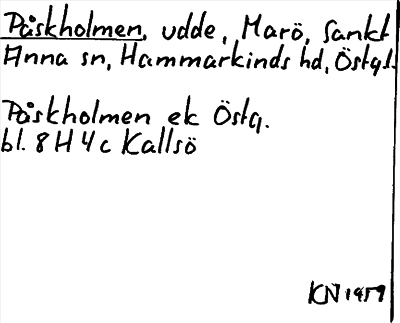 Påskholmen, udde, Marö, Sankt
Anna sn, Hammarkinds hd, Östgl.
Påskholmen ek Östg.
bl. 8 H 4 c Kallsö
KN 1959